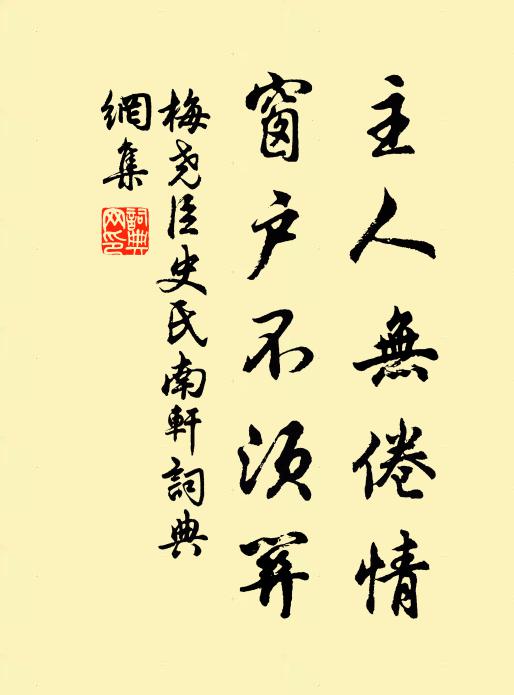 主人無倦情
窗户不須
梅尧臣史氏南軒詞典
網集
詞典网印